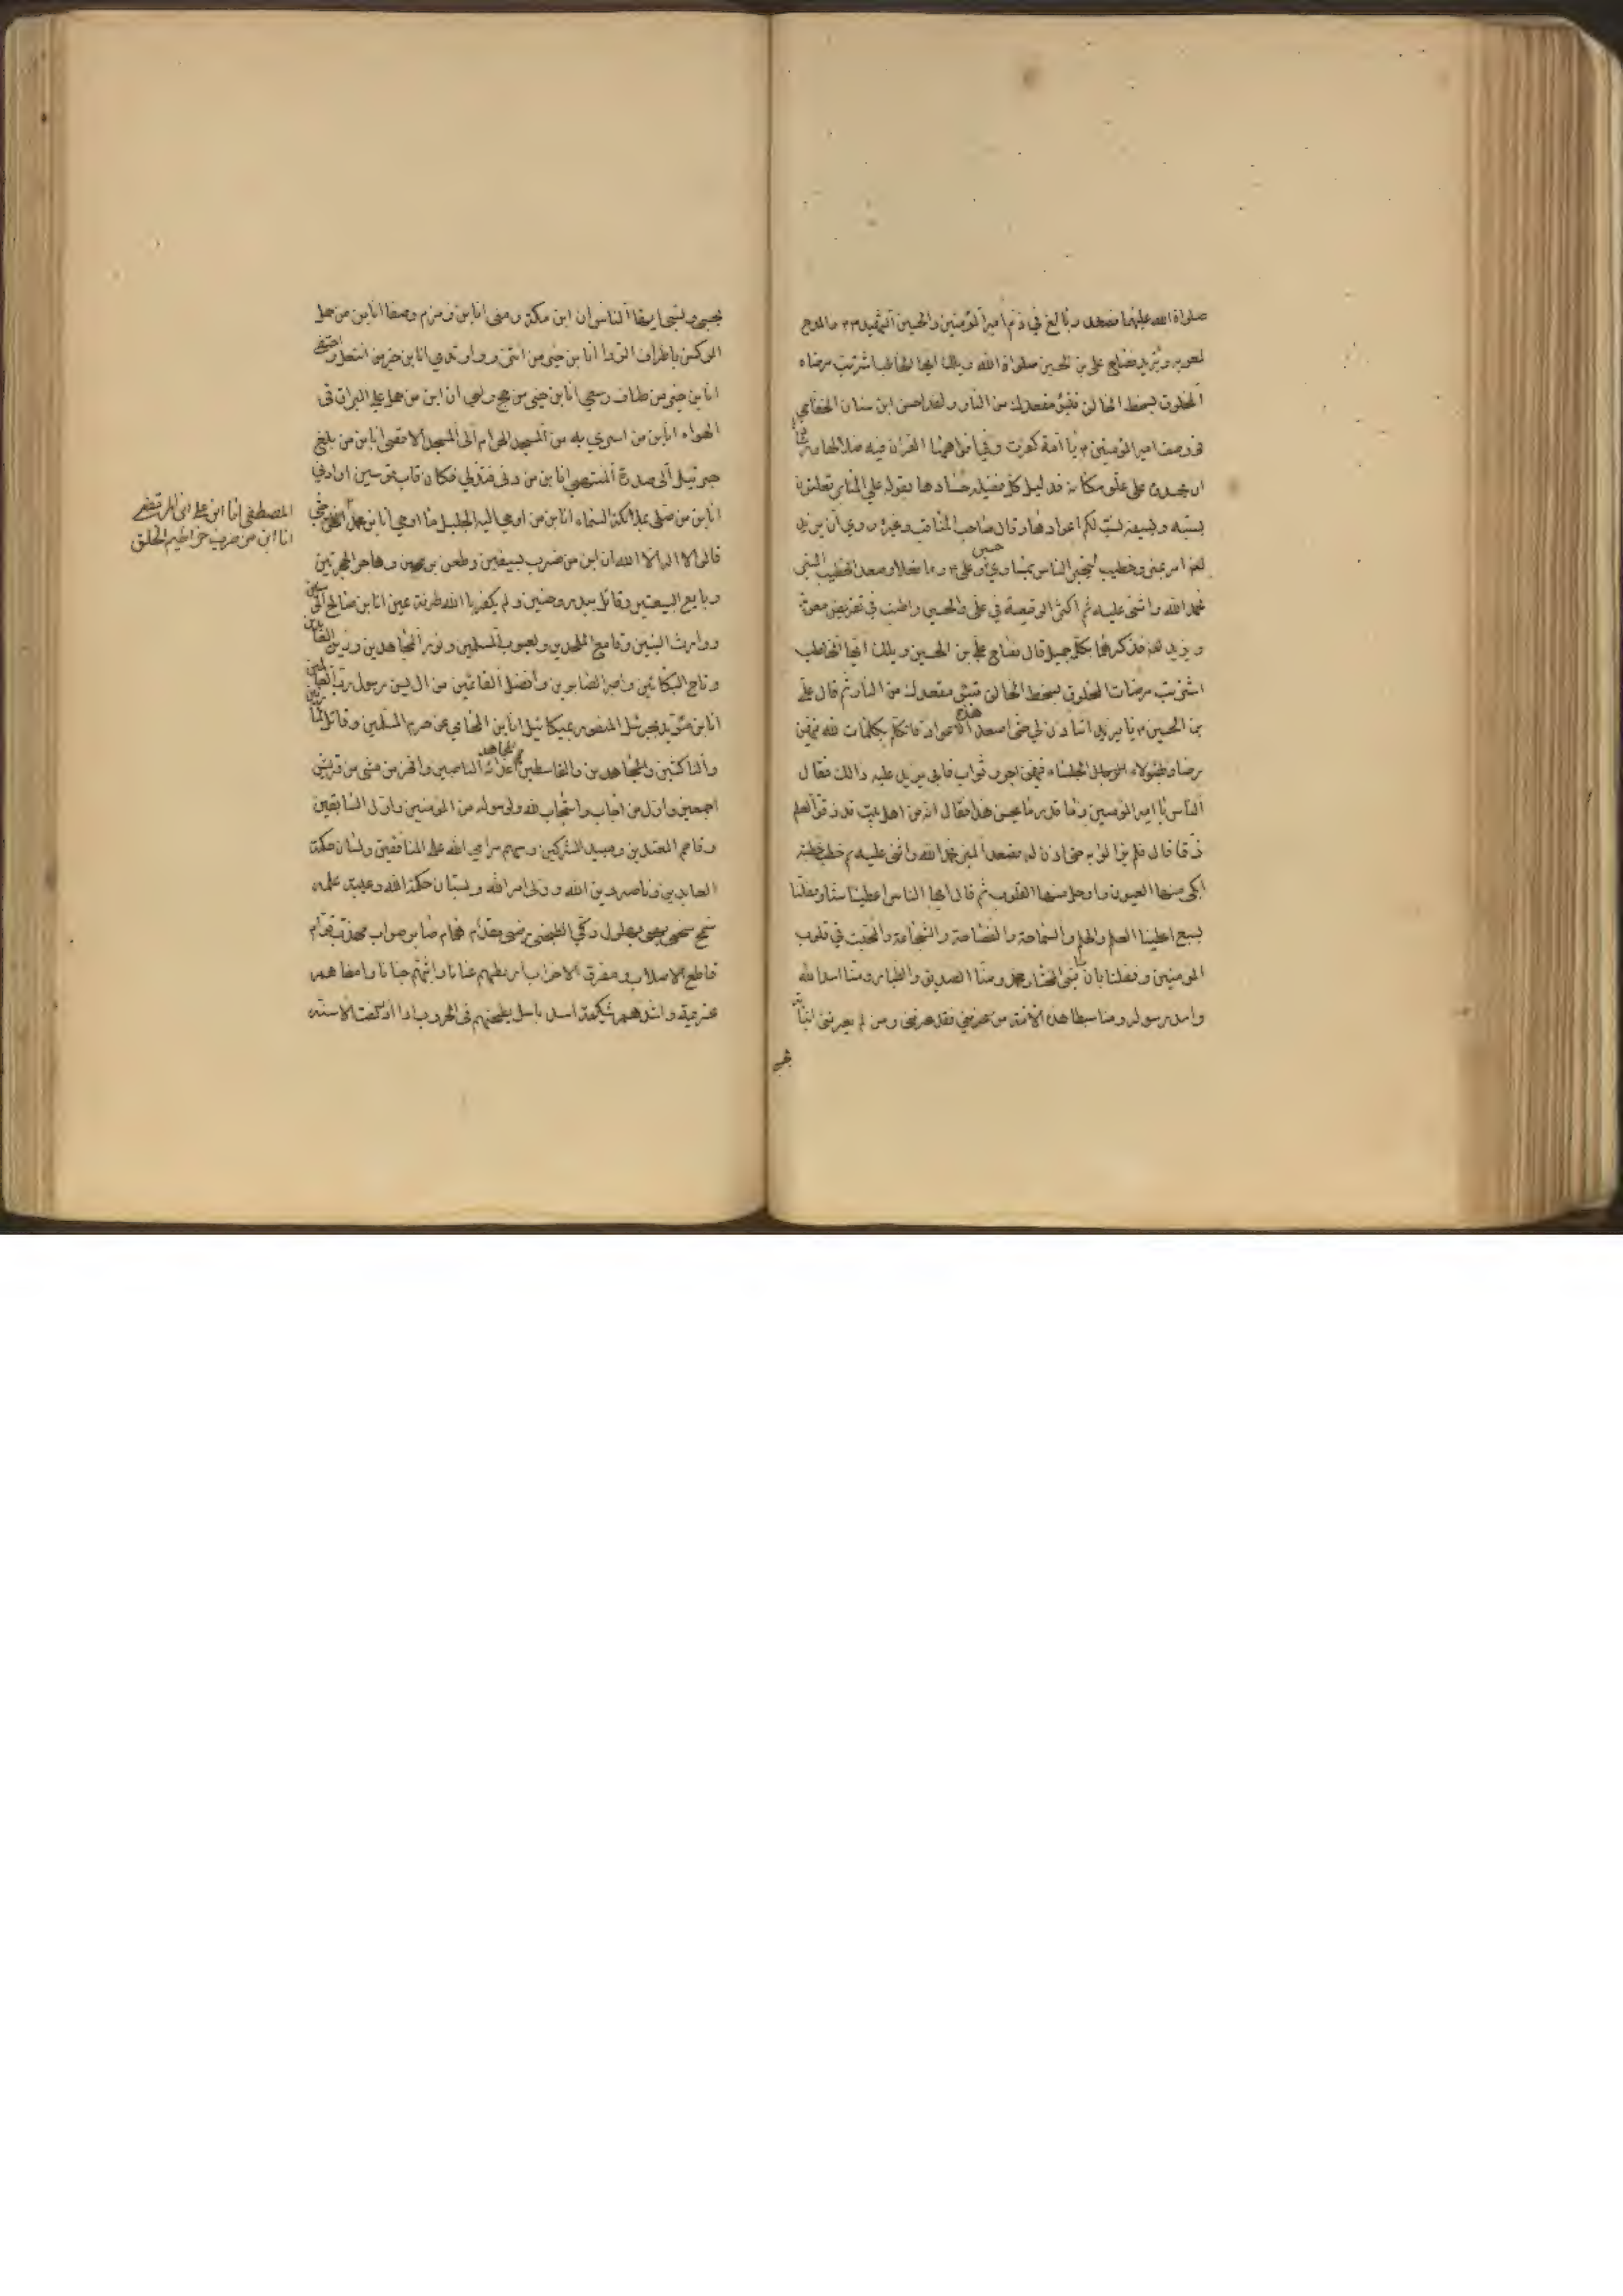 صلواة الله عليهما فصعد وبالغ في ذم امير المؤمنين والحسين الشهيد والمدح
لمعوية ويزيد فصاح علي بن الحسين صلواة الله ويلك ايها الخاطب اشتريت مرضاة
المخلوق بسخط الخالق فتبوء مقعدك من النار ولقد احسن ابن سنان الخفاجي
في وصف امير المؤمنين يا امة كفرت وفي افواهها القران فيه ضلالها ورشادها
اعلى المنابر تعلنون
بسبه وبسيفه نصبت لكم اعوادها وقال صاحب المناقب وغيره روي ان يزيد
لعنه امر بمنبر وخطيب ليخبر الناس بمساوي حسين وعلي وما فعلا وصعد الخطيب المنبر
فحمد الله واثنى عليه ثم اكثر الوقيعة في علي والحسين واطنب في تقريض معوية
ويزيد لعنه فذكرهما بكل جميل قال فصاح علي بن الحسين ويلك ايها الخاطب
اشتريت مرضات المخلوق بسخط الخالق فتبوء مقعدك من النار ثم قال علي
بن الحسين يا يزيد اتاذن لي حتى اصعد هذه الاعواد فاتكلم بكلمات لله فيهن
رضا ولهؤلاء الجلساء فيهن اجر وثواب فابى يزيد عليه ذالك فقال
الناس يا امير المومنين وما قدر ما يحسن هذا فقال انه من اهل بيت قد زقوا العلم
زقا قال فلم يزالوا به حتى اذن له فصعد المنبر فحمد الله واثنى عليه ثم خطب خطبة
ابكى منها العيون واوجل منها القلوب ثم قال ايها الناس اعطينا ستا وفضلنا
بسبع اعطينا العلم والحلم والسماحة والفصاحة والشجاعة والمحبة في قلوب
المومنين وفضلنا بان منا النبي المختار محمد ومنا الصديق والطيار ومنا اسد الله
واسد رسوله ومنا سبطا هذه الامة من عرفني فقد عرفني ومن لم يعرفني انباته
بحسبي ونسبي ايها الناس ان ابن مكة ومنى انا بن زمزم وصفا انا بن من حمل
الركن باطراف الردا انا بن خير من ائتزر وارتدي انا بن خير من انتعل واحتفى
انا بن خير من طاف وسعي انا بن خير من حج ولبي ان ابن من حمل علي البراق في
الهواء انا بن من اسري به من المسجد الحرام الى المسجد الاقصى انا بن من بلغ
جبرئيل الى سدرة المنتهى انا بن من دنى فتدلي فكان قاب قوسين او ادني
انا بن من صلى بملائكة السماء انا بن من اوحي اليه الجليل ما اوحي انا بن محمد
المصطفى انا ابن علي المرتضى
انا ابن من ضرب خراطيم الخلق حتى
قالوا لا اله الا الله ان ابن من ضرب بسيفين وطعن برمحين وهاجر الهجرتين
وبايع البيعتين وقاتل ببدر وحنين ولم يكفر با الله طرفة عين انا بن صالح المومنين
ووارث النبيين وقامع الملحدين ويعسوب المسلمين ونور المجاهدين وزين العابدين
وتاج البكائين واصبر الصابرين وافضل القائمين من ال يس رسول رب العالمين
انا بن المؤيد بجبرئيل المنصور بميكائيل انا بن المحامي عن حرم المسلمين وقاتل المارقين
والناكثين والقاسطين والمجاهد اعدائه الناصبين وافخر من مشى من قريش
اجمعين واول من اجاب واستجاب لله ولرسوله من المومنين واول السابقين
وقاصم المعتدين ومبيد المشركين وسهم مرامي الله على المنافقين ولسان حكمة
العابدين وناصر دين الله وولى امر الله وبستان حكمة الله وعيبة علمه
سمح سخى بهى بهلول زكي ابطحي رضى مقدام همام صابر صوام مهذب قوام
قاطع الاصلاب ومفرق الاحزاب اربطهم عنانا واثبتهم جنانا وامضاهم
عزيمة واشدهم شكيمة اسد باسل يطحنهم في الحروب اذا ازدلفت الاسنة